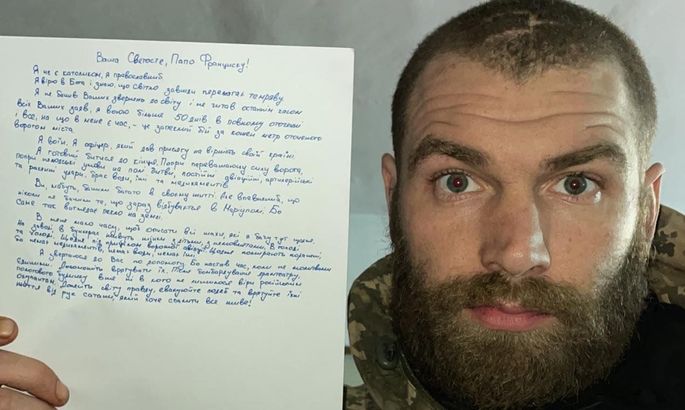 Ваша Святосте, Папо Франциску!
Я не є католиком, я православний.
Я вірю в Бога і знаю, що світло завжди перемагає темряву.
Я не бачив Ваших звернень до світу і не читав останнім часом
всіх Ваших заяв, я воюю більше 50 днів в повному оточенні
і все, на що в мене є час, – це запеклий бій за кожен метр оточеного
ворогом міста.
Я воїн. Я офіцер, який дав присягу на вірність своїй країні.
Я готовий битися до кінця. Попри переважаючу силу ворога,
попри нелюдські умови на полі битви, постійні авіаційні, артилерійські
та ракетні удари, брак води, їжі та медикаментів.
Ви, мабуть, бачили багато в своєму житті. Але впевнений, що
ніколи не бачили те, що зараз відбувається в Маріуполі. Бо
саме так виглядає пекло на землі.
В мене мало часу, щоб описати всі жахи, які я бачу тут щодня.
На заводі в бункерах живуть жінки з дітьми, з немовлятами. В голоді
та холоді. Щодня під прицілом ворожої авіації. Щодня помирають поранені,
бо немає медикаментів, немає води, немає їжі.
Я звертаюся до Вас по допомогу. Бо настав час, коли не молитвами
єдиними. Допоможіть врятувати їх. Після бомбардування драмтеатру,
пологового будинку вже ні в кого не лишилося віри російським
окупантам. Донесіть світу правду, евакуюйте людей та врятуйте їхні
життя від рук сатани, який хоче спалити все живе!